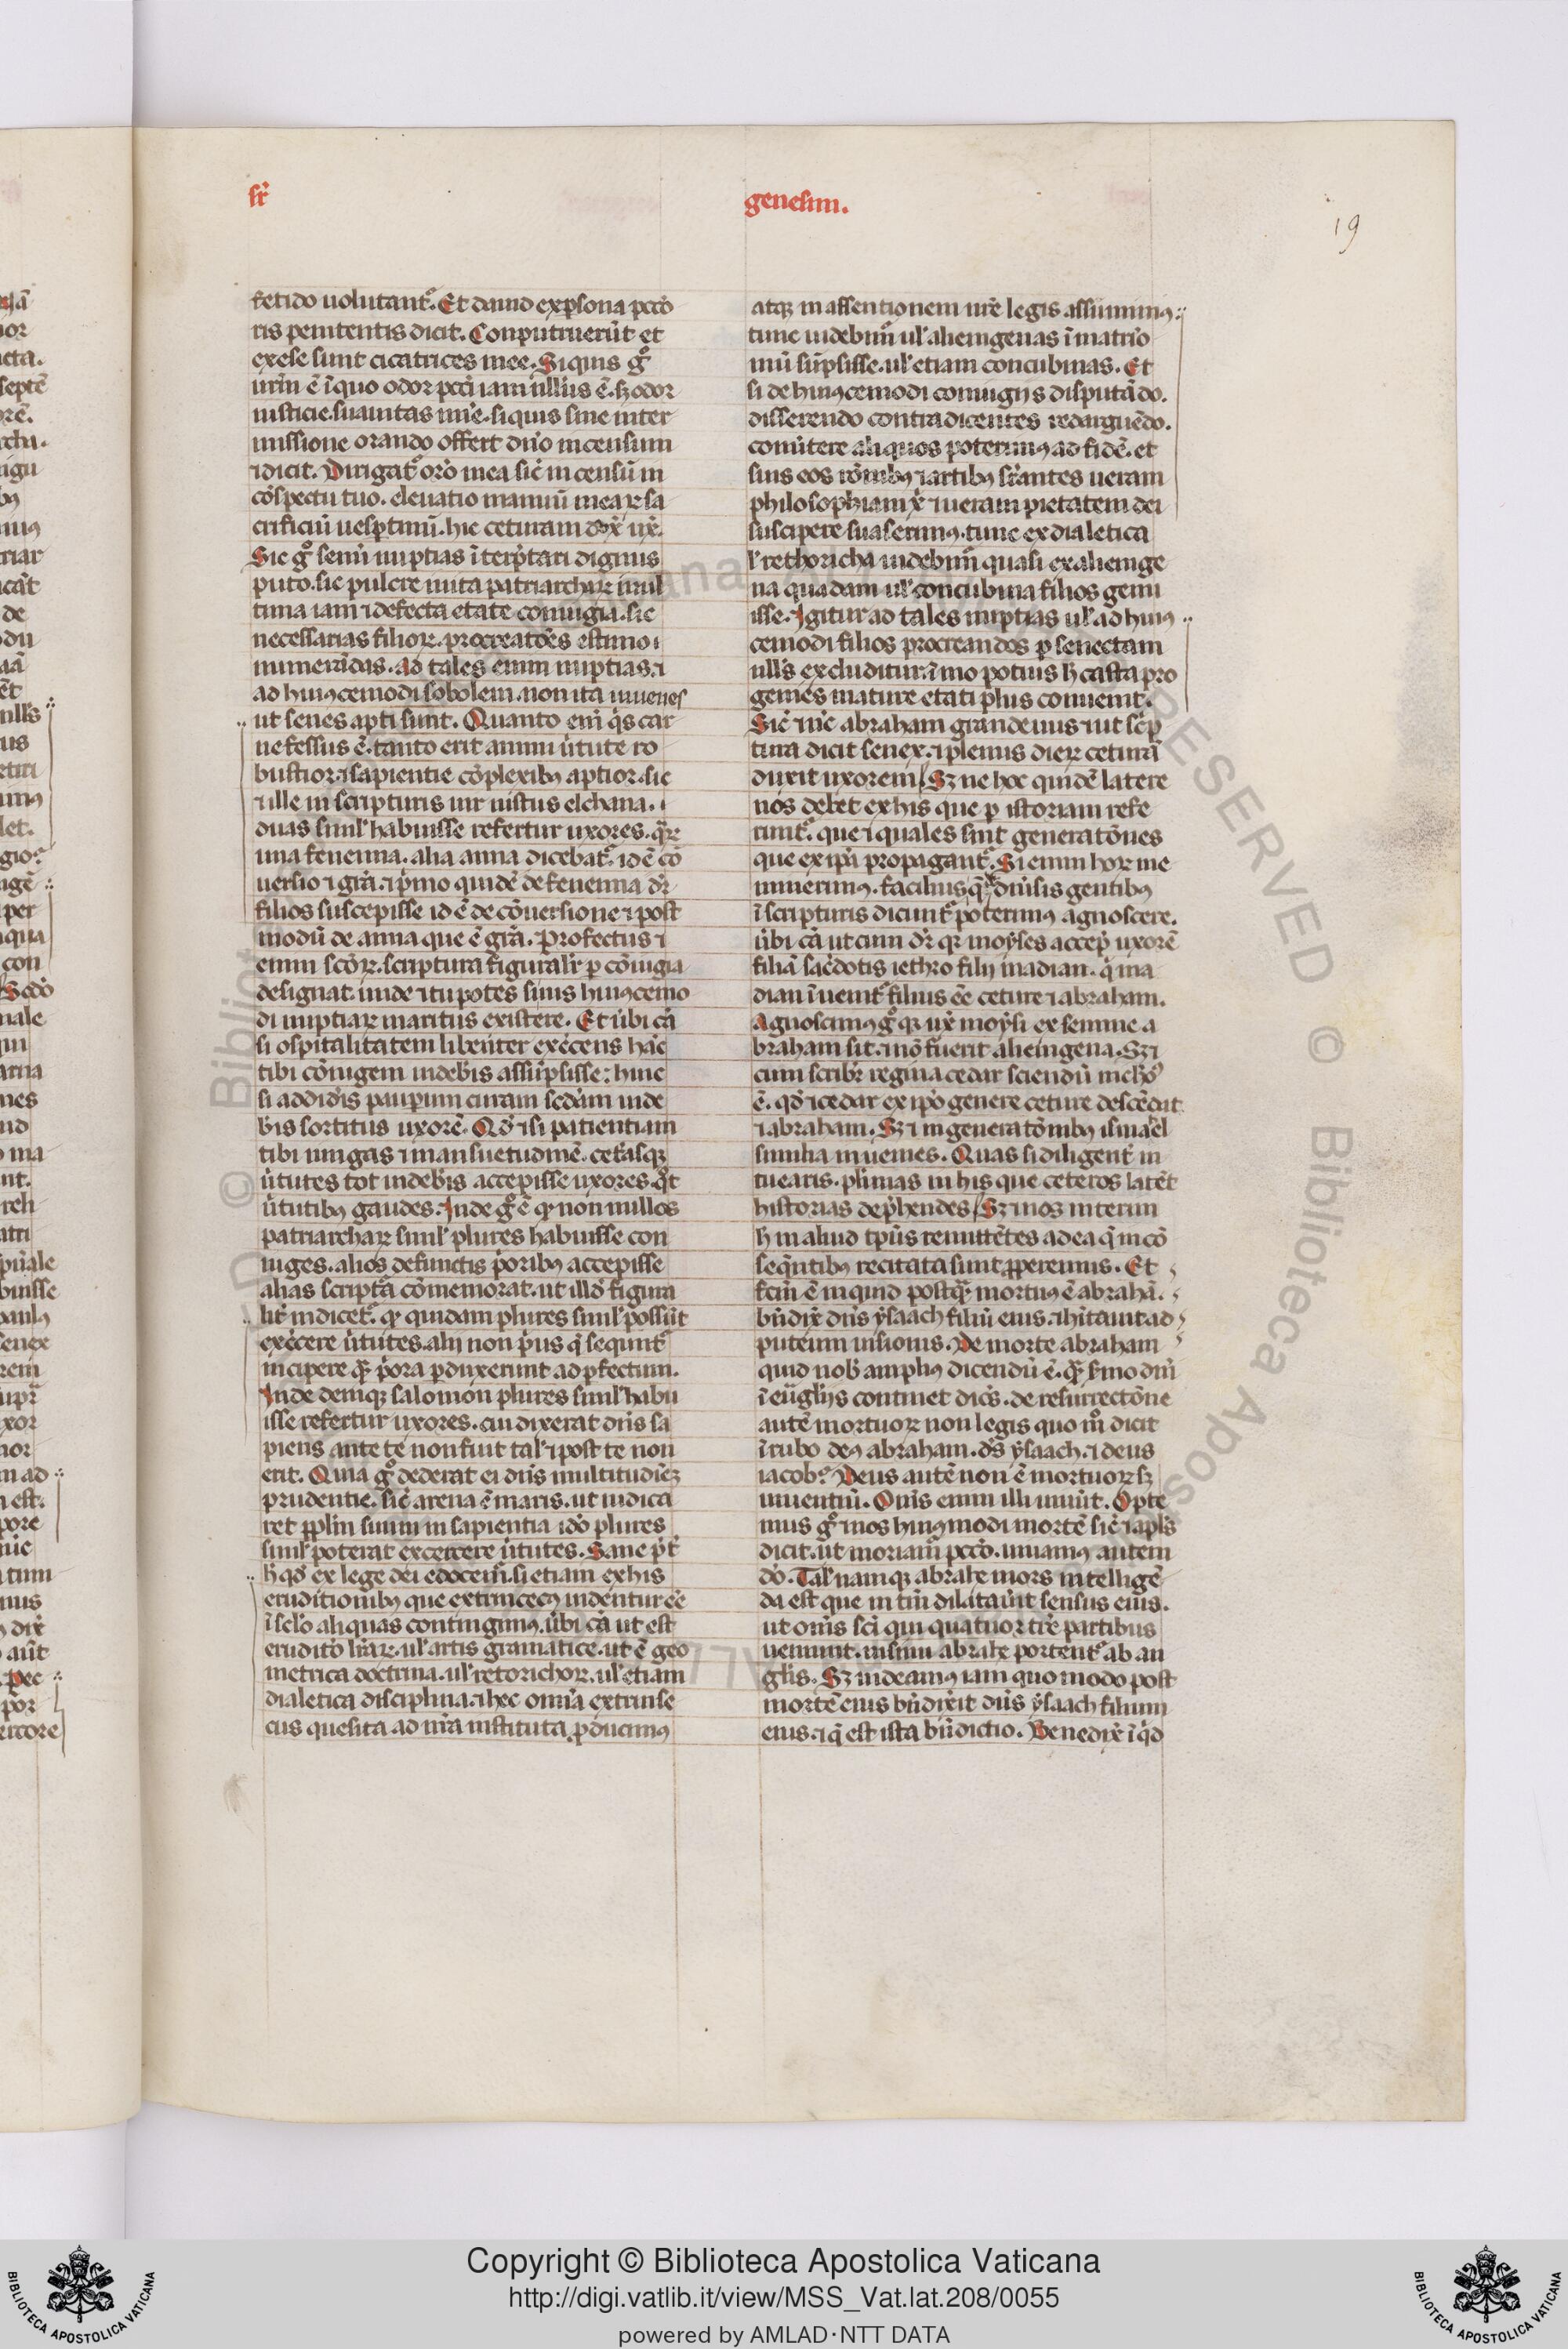 sr̄
genesim.
19
fetido uolutant᷒. Et dauid ex ꝑsona pccō
ris penitentis dicit. Conputruerūt et
exese sunt cicatrices mee. Siquis gͦ
urm̄ ē īquo odor pcc̄i iam nullus ē. sꝫ odor
iusticie. suauitas mīe. siquis sine inter
missione orando offert dn̄o incensum
⁊dicit. Dirigat᷒ orō mea sic̄ incensū in
cōspectu tuo. eleuatio manuū meaꝝ sa
crificiū uesꝑtinū. hic ceturam dx̄ ux̄.
Sic gͦ senū nuptias īterp̄tari dignius
puto. sic pulcre nuta patriarchaꝝ in ul
tima iam ⁊defecta etate coniugia. sic
necessarias filioꝝ. procreatōes estimo ⁊
numerādas. Ad tales enim nuptias. ⁊
ad huiꝰcemodi sobolem. non ita iuuenes
ut senes apti sunt. Quanto enī q̇s car
ne fessus ē. tanto erit animi u̇tute ro
bustior. ⁊sapientie cōplexibꝰ aptior. sic
⁊ille in scripturis uir iustus elchana. ⁊
duas simul habuisse refertur uxores. quaꝝ
una fenenna. alia anna dicebat᷒. id ē cō
uersio ⁊ grā. ⁊p̄mo quidē de fenenna dr̄
filios suscepisse id ē de cōuersione ⁊ post
modū de anna que ē grā. Profectus ⁊
enim scōꝝ. scriptura figuralr̄ ꝑ cōiugia
designat. unde ⁊tu potes si uis huiꝰcemo
di nuptiaꝝ maritus existere. Et ūbi cā
si ospitalitatem libenter exercens hāc
tibi cōiugem uideb̄is assūpsisse: huic
si addid̄is pauꝑum curam sedām uide
b̄is sortitus uxorē. Qđ ⁊si patientiam
tibi iungas ⁊ mansuetudinē. cet̄asqꝫ
u̇tutes tot uideb̄is accepisse uxores. qͦt
u̇tutibꝰ gaudes. Inde gͦ ē ꝙ non nullos
patriarchaꝝ simul plures habuisse con
iuges. alios defunctis p̄oribꝰ accepisse
alias scriptā cōmemorat. ut illđ figura
lit̄ indicet᷒. ꝙ quidam plures simul possūt
exercere u̇tutes. alij non p̄us q̇ sequnt᷒
incipere qͣꝫ p̄ora ꝑduxerunt ad ꝑfectum.
Inde deniqꝫ salomon plures simul habu
isse refertur uxores. cui dixerat dn̄s sa
piens ante te non fuit tal̄ ⁊post te non
erit. Quia gͦ dederat ei dn̄s multitudīeꝫ
prudentie. sic̄ arena ē maris. ut iudica
ret pplm̄ suum in sapientia ido plures
simul poterat excercere u̇tutes. Sane p̄t̄
h̄ qđ ex lege dei edocem᷒. si etiam ex his
eruditionibꝰ que extrincecꝰ uidentur eē
ī sclo aliquas contingimꝰ. ūbi cā ut est
eruditō lrāꝝ. ul̄ artis gramatice. ut ē geo
metrica doctrina. ul̄ retorichoꝝ. ul̄ etiam
dialetica disciplina. ⁊hec omīa extrinse
cus quesita ad nrā instituta ꝓducimꝰ
atqꝫ in assentionem nr̄e legis assumimꝰ:
tunc uidebim᷒ ul̄ alienigenas ī matrīo
niū sūpsisse. ul̄ etiam concubinas. Et
si de huiꝰcemodi coniugijs disputādo.
disserendo contradicentes redarguēdo.
conu̇tere aliquos poterimꝰ ad fidē. et
suis eos rōnibꝰ ⁊artibꝰ sup̄antes ueram
philosophiam x̄p̄i ⁊ ueram pietatem dei
suscipere suaserimꝰ. tunc ex dialetica
l̄ rethoricha uidebim᷒ quasi ex alienige
na quadam ul̄ concubina filios genu
isse. Igitur ad tales nuptias ul̄ ad huiꝰ
cemodi filios procreandos ꝑ senectam
null᷒s excluditur. īmo potius h̄ casta pro
genies mature etati plus conuenit.
Sic̄ ⁊nc̄ abraham grandeuus ⁊ut sc̄ip
tura dicit senex. ⁊plenus dieꝝ ceturā
duxit uxorem. Sꝫ ne hoc quidē latere
nos debet ex his que ꝑ istoriam refe
runt᷒. que ⁊ quales sint generatōnes
que ex ip̄a propagant᷒. Si enim hoꝝ me
minerimꝰ. facilius q̄ de diu̇sis gentibꝰ
ī scripturis dicunt᷒ poterimꝰ agnoscere.
ūbi cā ut cum dr̄ qꝛ moẏses accep̄ uxorē
filiā sac̄dotis iethro filij madian. q̇ ma
dian īuenit᷒ filius eē ceture ⁊ abraham.
Agnoscimꝰ gͦ qꝛ ux̄ moẏsi ex semine a
braham sit. ⁊nō fuerit alienigena. Sꝫ ⁊
cum scribr̄ regina cedar sciendū nichō
ē. qđ ⁊cedar ex ip̄o genere ceture descēdit
⁊abraham. Sꝫ ⁊ in generatōnibꝰ ismael
similia inuenies. Quas si diligent̄ in
tuearis. plīmas in his que ceteros latēt
historias dep̄hendes. Sꝫ ⁊nos interim
h̄ in aliud tp̄us remittētes ad ea q̄ in cō
seq̄ntibꝰ recitata sunt ꝓperemus. Et
fcm̄ ē inquid postqͣꝫ mortuꝰ ē abrahā.
bn̄dix̄ dn̄s ẏsaach filiū eius. ⁊hitauit ad
puteum uisionis. De morte abraham
quid nob̄ ampliꝰ dicendū ē. qͣꝫ s̄mo dn̄i
ī eūgl̄ijs continet dic̄s. de resurrectōne
autē mortuoꝝ non legis quo mͦ dicit
ī rubo deꝰ abraham. ds̄ ẏsaach. ⁊ deus
iacob? Deus autē non ē mortuoꝝ sꝫ
uiuentiū. Om̄s enim illi uiuūt. Opte
mus gͦ ⁊nos huiꝰmodi mortē sic̄ ⁊apl̄s
dicit. ut moriam᷒ pccō. uiuamꝰ autem
dō. Tal̄ namqꝫ abrahe mors intelligē
da est que in tm̄ dilatauit sensus eius.
ut om̄s sci qui quatuor tr̄e partibus
ueniunt. insinu abrahe portent᷒ ab an
gl̄is. Sꝫ uideamꝰ iam quo modo post
mortē eius bn̄dixit dn̄s ẏsaach filium
eius. ⁊ q̄ est ista bn̄dictio. Benedix̄ ī qđ
Copyright © Biblioteca Apostolica Vaticana
http://digi.vatlib.it/view/MSS_Vat.lat.208/0055
powered by AMLAD·NTT DATA